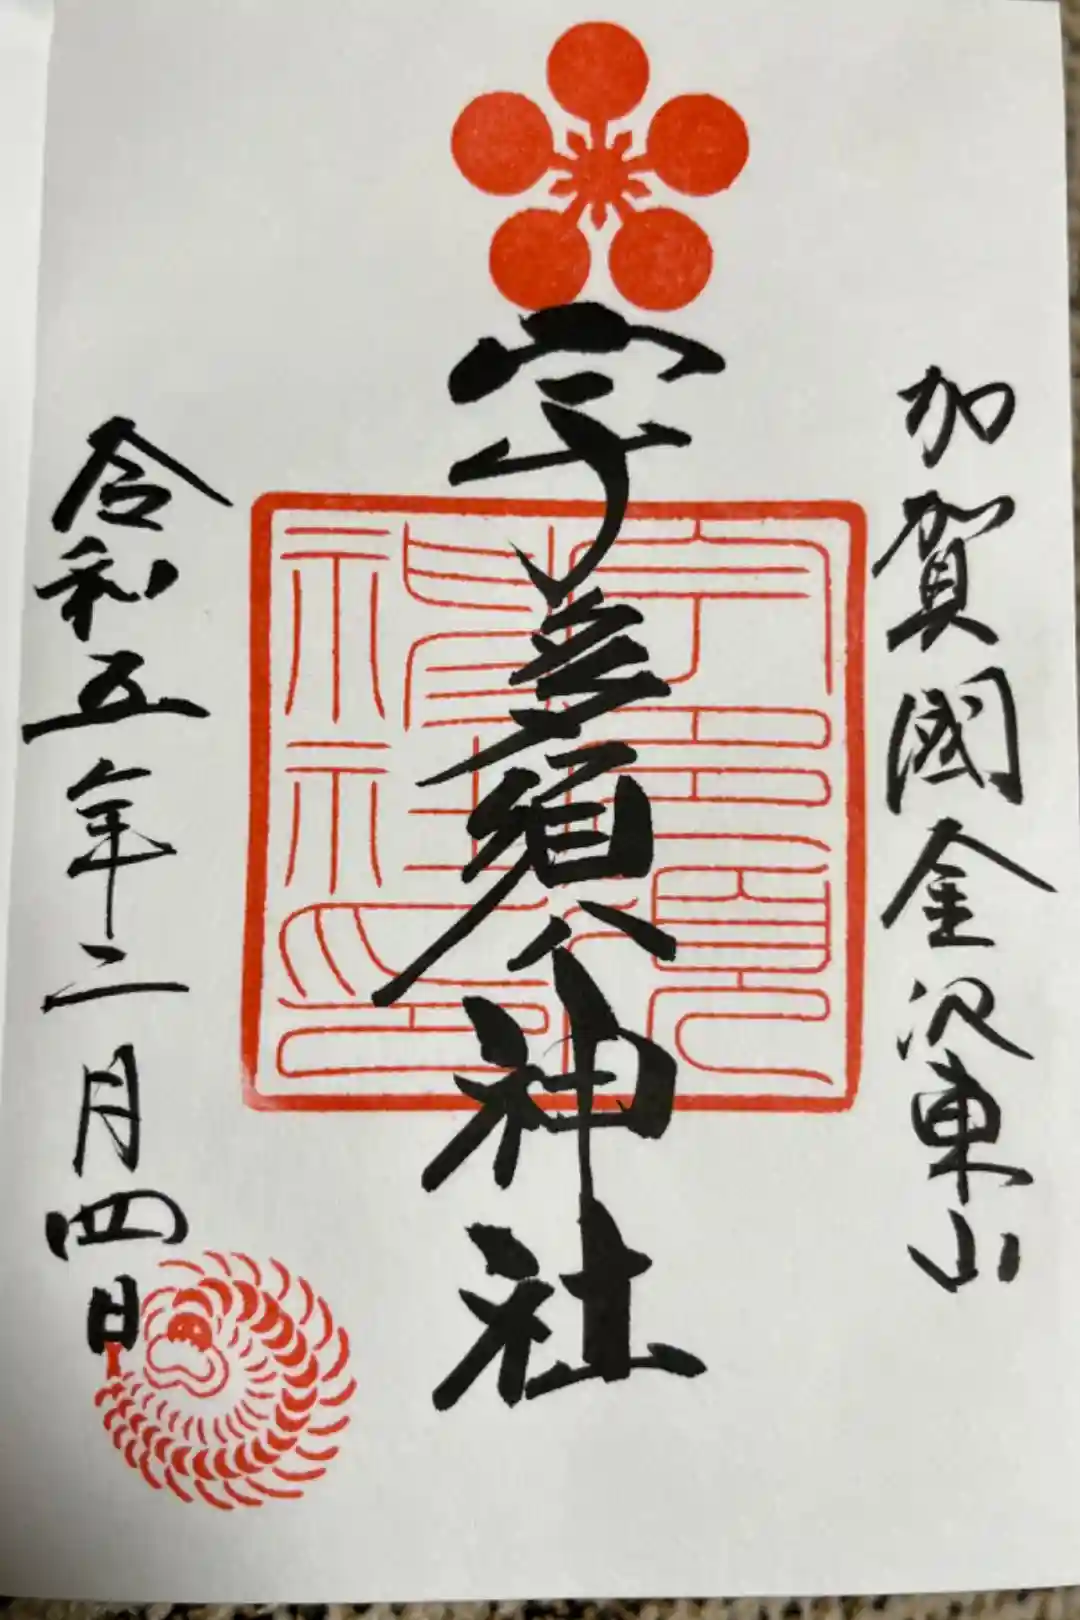 加賀國金沢東山
宇多須神社
令和五年二月四日